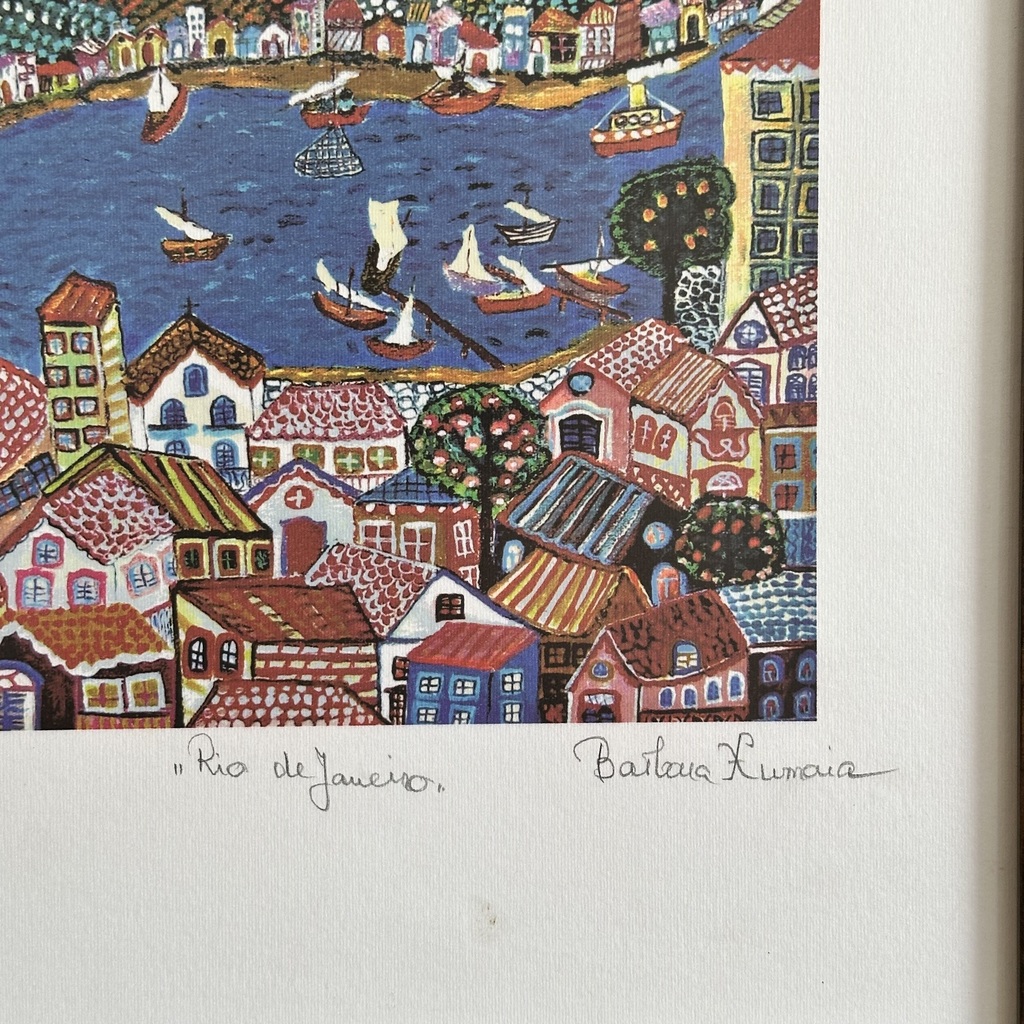 „Rio de Janeiro„ Barbara